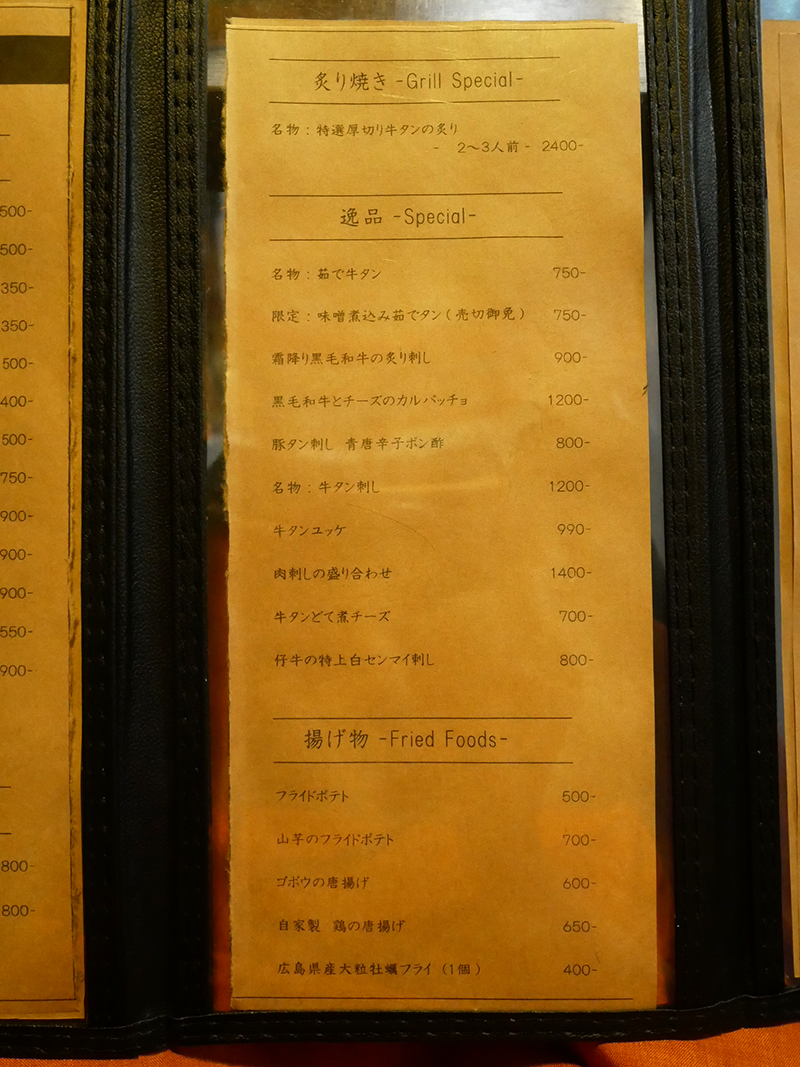 炙り焼き -Grill Special-
名物 : 特選厚切り牛タンの炙り
- 2〜3人前 - 2400-
逸品 -Special-
名物 : 茹で牛タン 750-
限定 : 味噌煮込み茹でタン ( 売切御免 ) 750-
霜降り黒毛和牛の炙り刺し 900-
黒毛和牛とチーズのカルパッチョ 1200-
豚タン刺し 青唐辛子ポン酢 800-
名物 : 牛タン刺し 1200-
牛タンユッケ 990-
肉刺しの盛り合わせ 1400-
牛タンどて煮チーズ 700-
仔牛の特上白センマイ刺し 800-
揚げ物 -Fried Foods-
フライドポテト 500-
山芋のフライドポテト 700-
ゴボウの唐揚げ 600-
自家製 鶏の唐揚げ 650-
広島県産大粒牡蠣フライ (1個 ) 400-
500-
500-
350-
350-
500-
400-
500-
750-
900-
900-
900-
550-
900-
800-
800-